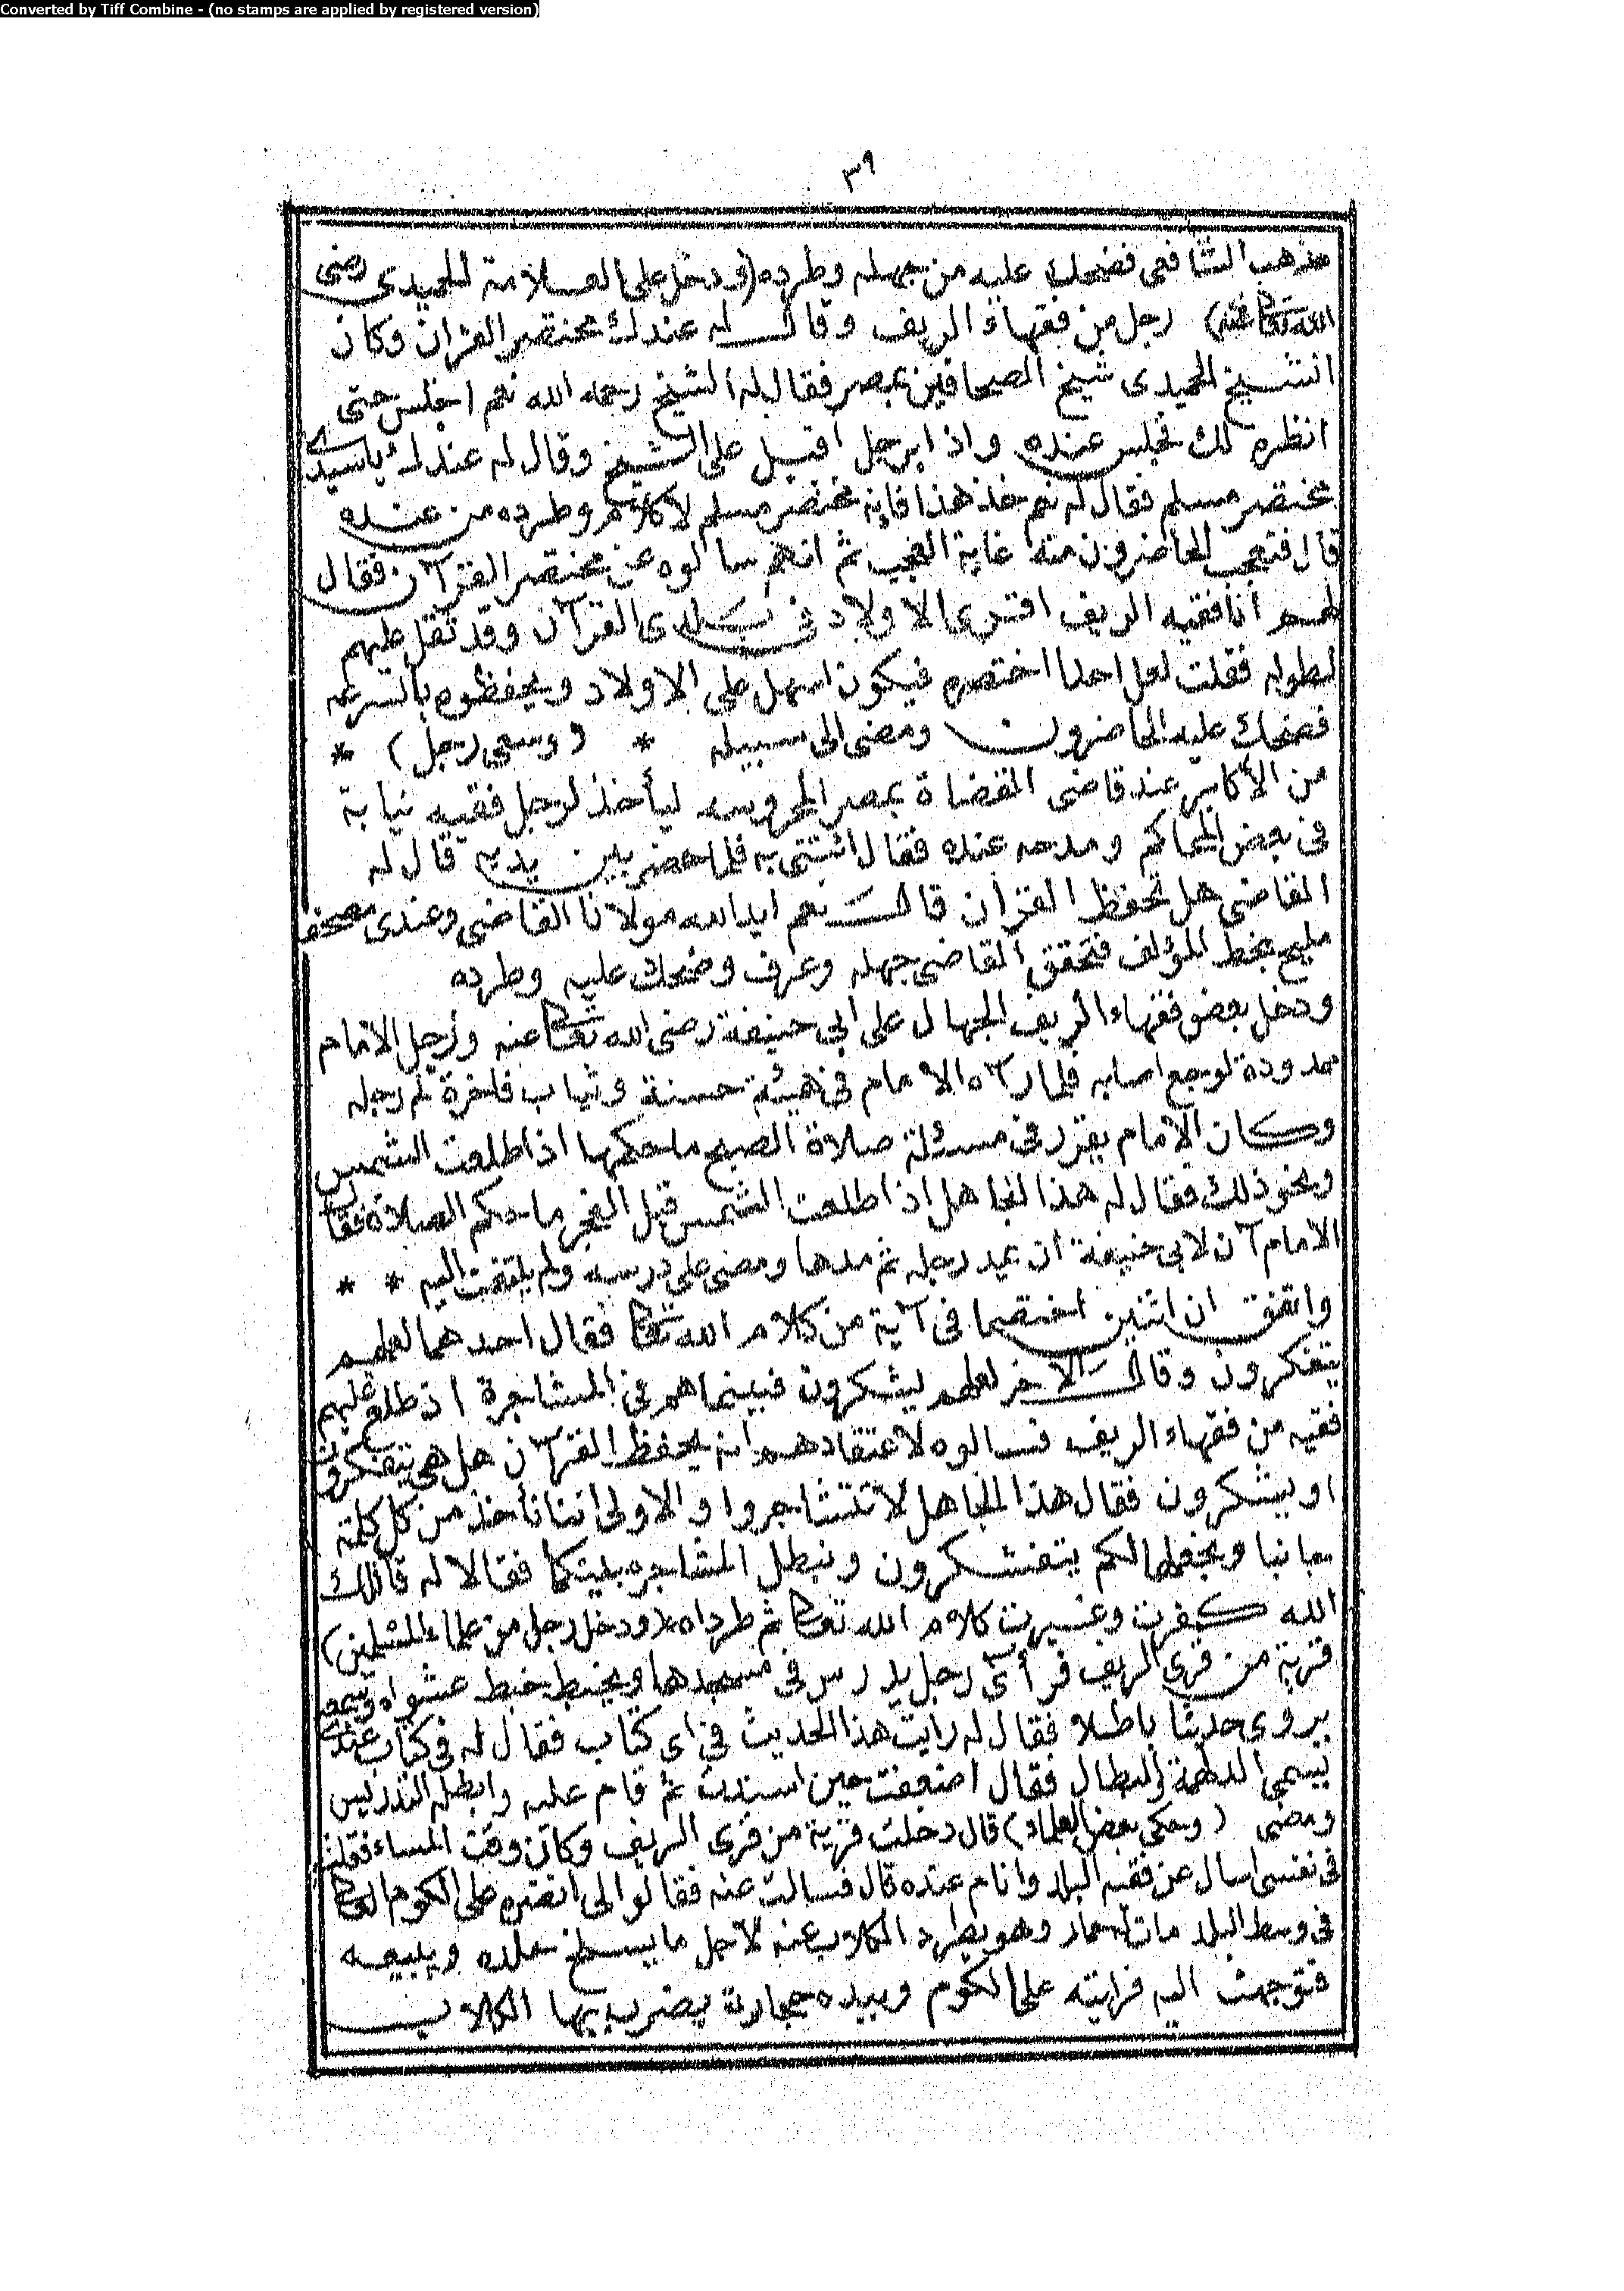 Converted by Tiff Combine - (no stamps are applied by registered version)
٣٩
مذهب الشافعى فضحك عليه من جهله وطرده (ودخل على العلامة الحميدى رضى
الله تعالى عنه) رجل من فقهاء الريف وقال له عندك مختصر القران وكان
الشيخ الحميدى شيخ الصحافين بمصر فقال له الشيخ رحمه الله نعم اجلس حتى
انظره لك فجلس عنده واذا برجل اقبل على الشيخ وقال له عندك ياسيدى
مختصر مسلم فقال له نعم خذ هذا فانه مختصر مسلم وطرده من عنده
قال فتعجب الحاضرون منه غاية العجب ثم انهم سالوه عن مختصر القرآن فقال
لهم أنا فقيه الريف اقرى الاولاد فى بلدى القرآن وقد ثقل عليهم
لطوله فقلت لعل احدا اختصره فيكون اسهل على الاولاد ويحفظوه بالسرعه
فضحك عليه الحاضرون ومضى الى سبيله * (وسعى رجل) *
من الأكابر عند قاضى القضاة بمصر المحروسه ليأخذ لرجل فقيه نيابة
فى بعض المحاكم ومدحه عنده فقال ائتنى به فلما حضر بين يديه قال له
القاضى هل تحفظ القران قال نعم ايد الله مولانا القاضى وعندى مصحفا
مليح بخط المؤلف فتحقق القاضى جهله وعرف وضحك عليه وطرده
ودخل بعض فقهاء الريف الجهال على ابى حنيفة رضى الله تعالى عنه ورجل الامام
ممدودة لوجع اصابه فلما رآه الامام فى هيئة حسنة وثياب فاخرة لم رجله
وكان الامام يقرر فى مسئلة صلاة الصبح ماحكمها اذا طلعت الشمس
ونحو ذلك فقال له هذا الجاهل اذا طلعت الشمس قبل الفجر ما حكم الصلاة فقال
الامام آن لابى حنيفة ان يمد رجله ثم مدها ومضى على درسه ولم يلتفت اليه * *
واتفق ان اثنين اختصما فى آية من كلام الله تعالى فقال احدهما لعلهم
يتفكرون وقال الاخر لعلهم يشكرون فبينما هم فى المشاجرة اذ طلع عليهم
فقيه من فقهاء الريف فسالوه لاعتقادهم انه يحفظ القرآن هل هى يتفكرون
او يشكرون فقال هذا الجاهل لا تتشاجروا والاولى اننا نأخذ من كل كلمة
جانبا ونجعلها لكم يتفشكرون ونبطل المشاجره بينكما فقالا له قاتلك
الله كفرت وغيرت كلام الله تعالى ثم طرداه (ودخل رجل من علماء المسلمين)
قرية من قرى الريف فرأى رجل يدرس فى مسجدها ويخبط خبط عشواء
يروى حديثا باطلا فقال له رايت هذا الحديث فى اى كتاب فقال له فى كتاب عندى
يسمى الدلهمة والبطال فقال اضعفت حين اسندت ثم قام عليه وابطله التدريس
ومضى (وحكى بعض العلماء) قال دخلت قرية من قرى الريف وكان وقت المساء فقلت
فى نفسى اسال عن فقيه البلد وانام عنده قال فسالت عنه فقالوا لى انظره على الكوم
فى وسط البلد مات له حمار وهو يطرد الكلاب عنه لاجل ما يسلخ جلده ويبيعه
فتوجهت اليه فرايته على الكوم وبيده حجارة يضرب بها الكلاب